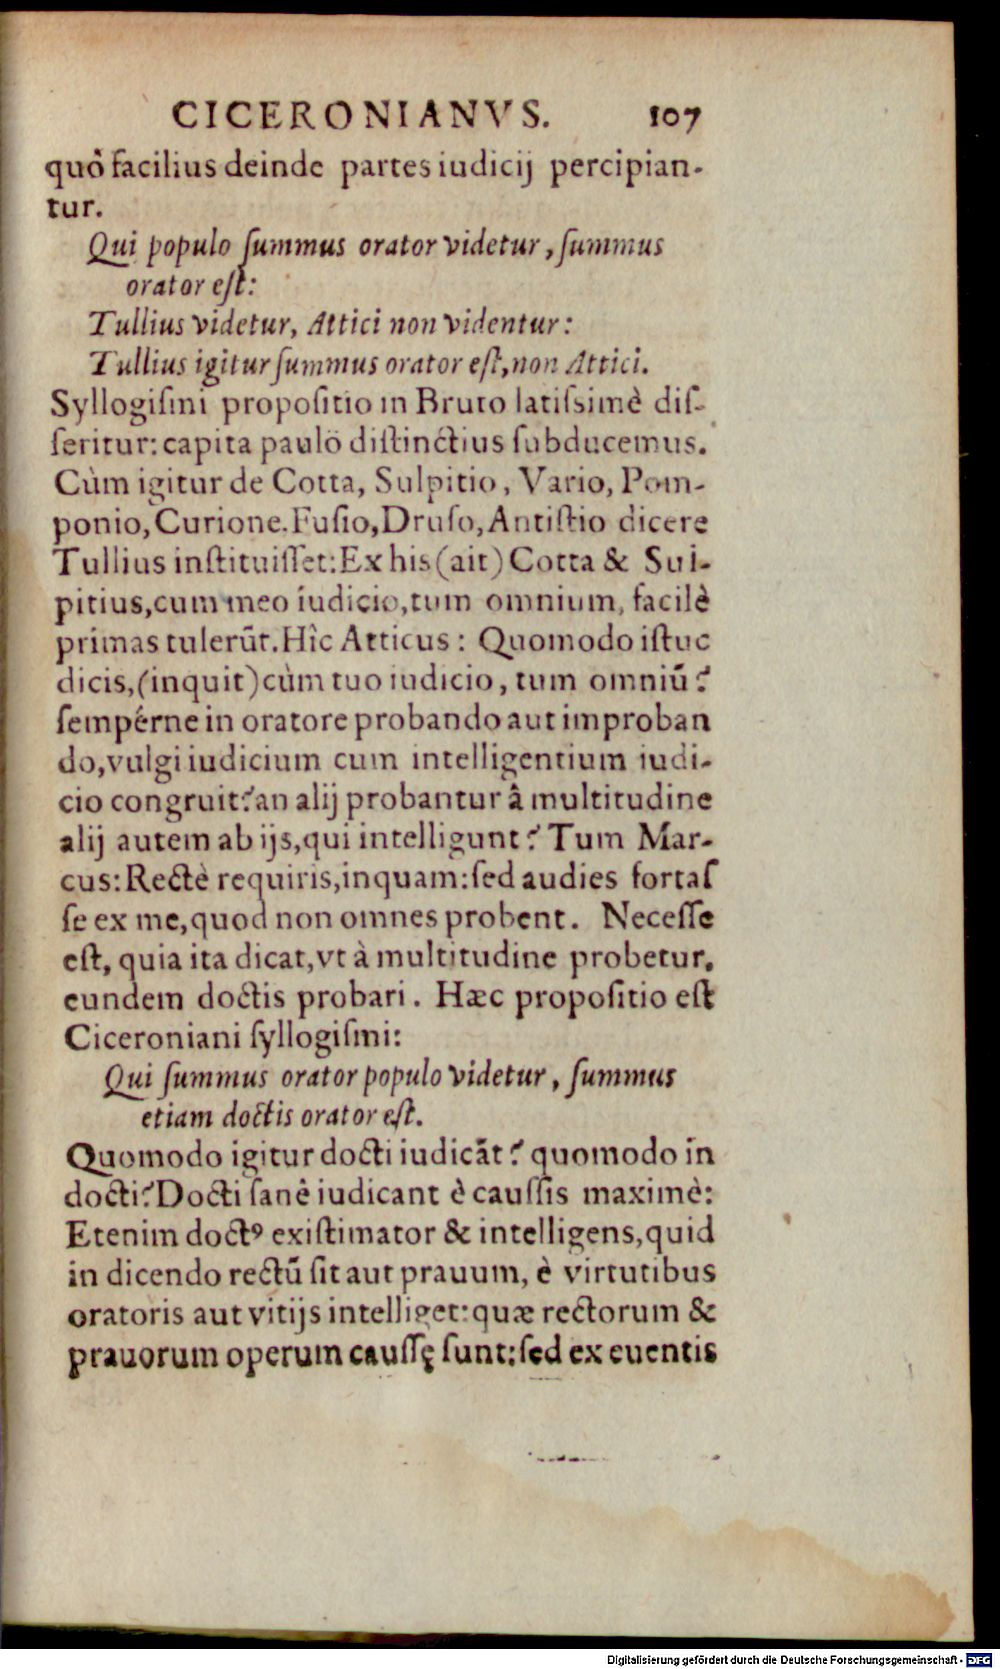 CICERONIANVS. 107
quô facilius deinde partes iudicij percipian-
tur.
Qui populo ſummus orator videtur, ſummus
orator eſt:
Tullius videtur, Attici non videntur:
Tullius igitur ſummus orator eſt, non Attici.
Syllogiſmi propoſitio in Bruto latiſsimè diſ-
ſeritur: capita paulò diſtinctius ſubducemus.
Cùm igitur de Cotta, Sulpitio, Vario, Pom-
ponio, Curione. Fuſio, Druſo, Antiſtio dicere
Tullius inſtituiſſet: Ex his (ait) Cotta & Sul-
pitius, cum meo iudicio, tum omnium, facilè
primas tulerūt. Hîc Atticus: Quomodo iſtuc
dicis, (inquit) cùm tuo iudicio, tum omniū?
ſempérne in oratore probando aut improban
do, vulgi iudicium cum intelligentium iudi-
cio congruit? an alij probantur â multitudine
alij autem ab ijs, qui intelligunt? Tum Mar-
cus: Rectè requiris, inquam: ſed audies fortaſ
ſe ex me, quod non omnes probent. Neceſſe
eſt, quia ita dicat, vt à multitudine probetur,
eundem doctis probari. Hæc propoſitio eſt
Ciceroniani ſyllogiſmi:
Qui ſummus orator populo videtur, ſummus
etiam doctis orator eſt.
Quomodo igitur docti iudicāt? quomodo in
docti? Docti ſanè iudicant è cauſſis maximè:
Etenim doctꝰ exiſtimator & intelligens, quid
in dicendo rectū ſit aut prauum, è virtutibus
oratoris aut vitijs intelliget: quæ rectorum &
prauorum operum cauſſę ſunt: ſed ex euentis
Digitalisierung gefördert durch die Deutsche Forschungsgemeinschaft - DFG